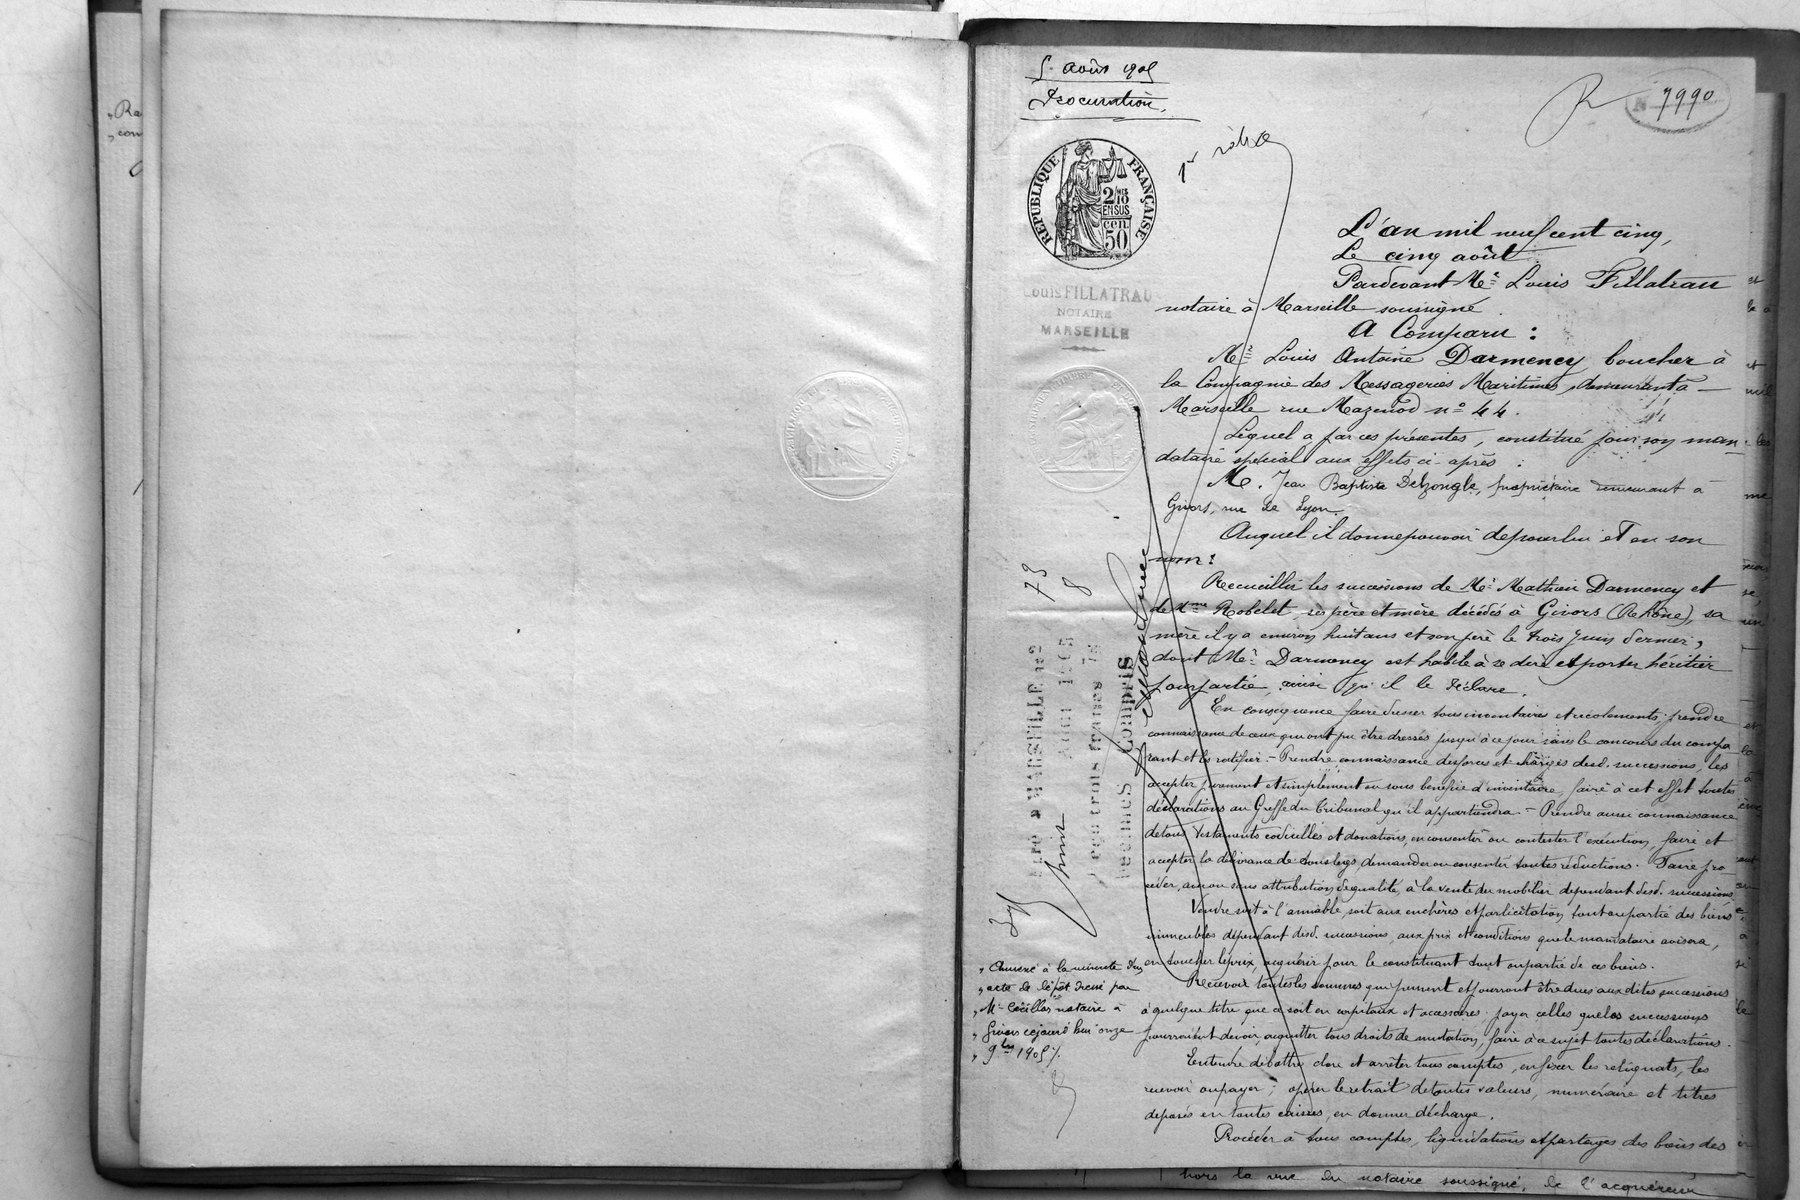 5 août 1905
Procuration
7990
1er rôle
RÉPUBLIQUE FRANÇAISE
2/10
EN SUS
cen.
50
Louis FILLATRAU
NOTAIRE
MARSEILLE
L'an mil neuf cent cinq,
Le cinq août
Pardevant Me Louis Fillatrau
notaire à Marseille soussigné
A Comparu :
Mr Louis Antoine Darmency boucher à
la Compagnie des Messageries Maritimes, demeurant à
Marseille rue Mazenod no 44.
Lequel a par ces présentes, constitué pour son man-
dataire spécial aux effets ci-après :
M. Jean Baptiste Delzongle, propriétaire demeurant à
Givors, rue de Lyon.
Auquel il donne pouvoir de pour lui et en son
nom :
Recueillir les successions de Mr Mathieu Darmency et
de Mme Robelet, ses père et mère décédés à Givors (Rhône), sa
mère il y a environ huit ans et son père le trois juin dernier,
dont Mr Darmency est habile à se dire et porter héritier
pour partie, ainsi qu'il le déclare.
En conséquence faire dresser tous inventaires et récolements, prendre
connaissance de ceux qui ont pu être dressés jusqu'à ce jour sans le concours du compa
rant et les ratifier. - Prendre connaissance des forces et charges desd. successions, les
accepter purement et simplement ou sous bénéfice d'inventaire, faire à cet effet toutes
déclarations au Greffe du Tribunal qu'il appartiendra. - Prendre aussi connaissance
de tous testaments codicilles et donations, en consentir ou contester l'exécution, faire et
accepter la délivrance de tous legs, demander ou consentir toutes réductions. Faire pro
céder, avec ou sans attribution de qualité, à la vente du mobilier dépendant desd. successions,
Vendre soit à l'amiable soit aux enchères et par licitation tout ou partie des biens
immeubles dépendant desd. successions, aux prix et conditions que le mandataire avisera,
en toucher le prix, acquérir pour le constituant tout ou partie de ces biens.
Recevoir toutes les sommes qui peuvent et pourront être dues aux dites successions
à quelque titre que ce soit en capitaux et accessoires ; payer celles que les successions
pourraient devoir, acquitter tous droits de mutation, faire à ce sujet toutes déclarations.
Entendre débattre clore et arrêter tous comptes, en fixer les reliquats, les
recevoir ou payer ; opérer le retrait de toutes valeurs, numéraire et titres
déposés en toutes caisses, en donner décharge.
Procéder à tous comptes, liquidations et partages des biens des
73
8
décimes compris
" Annexé à la minute d'un
" acte de dépôt dressé par
" Me notaire à
" Givors cejourd'hui onze
" 9bre 1905 /.
hors la vue du notaire soussigné, de l'acquéreur